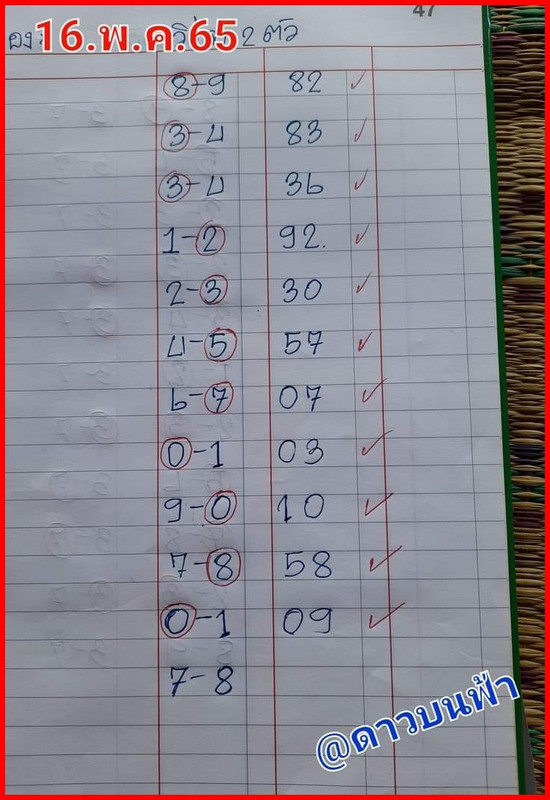 47
16.พ.ค.65 2 ตัว
8-9 82 ✓
3-4 83 ✓
3-4 36 ✓
1-2 92. ✓
2-3 30 ✓
4-5 57 ✓
6-7 07 ✓
0-1 03 ✓
9-0 10 ✓
7-8 58 ✓
0-1 09 ✓
7-8
@ดาวบนฟ้า